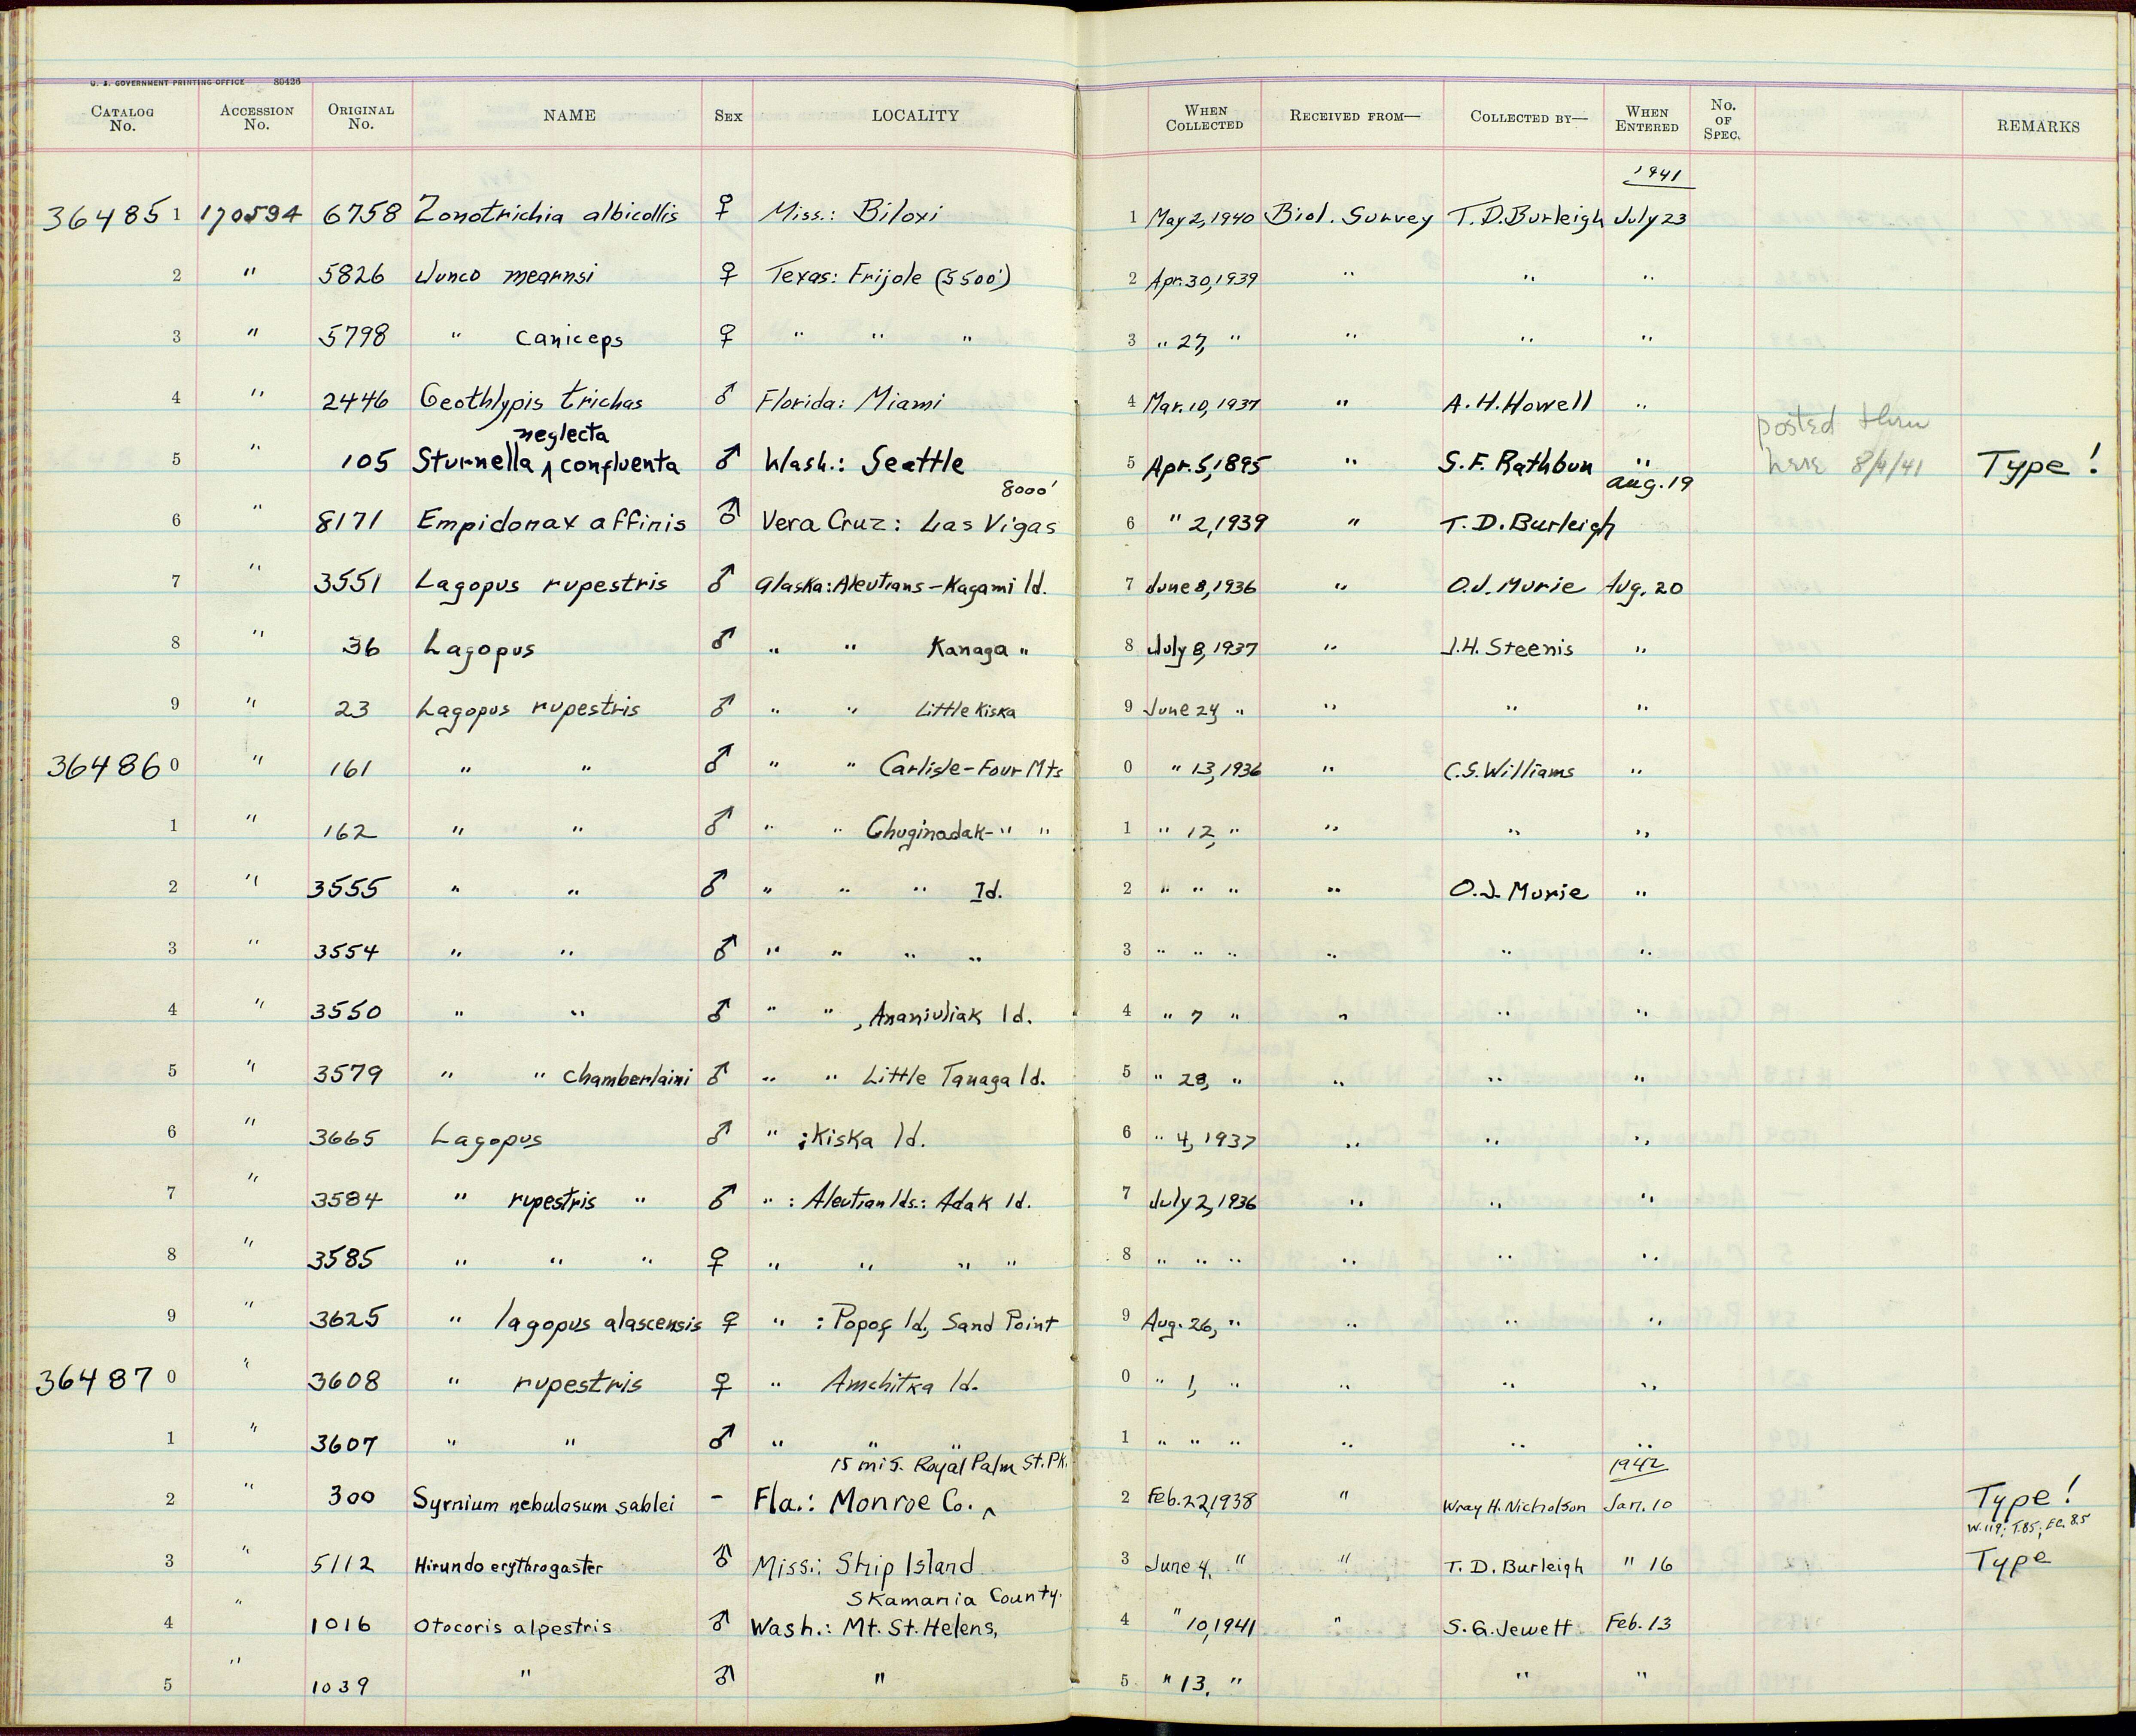 U. S. GOVERNMENT PRINTING OFFICE 80426
CATALOG No. ACCESSION No. ORIGINAL No. NAME SEX LOCALITY WHEN COLLECTED RECEIVED FROM— COLLECTED BY— WHEN ENTERED No. OF SPEC. REMARKS
1941
364851 170594 6758 Zonotrichia albicollis ♀ Miss.: Biloxi 1 May 2, 1940 Biol. Survey T.D.Burleigh July 23
2 " 5826 Junco mearnsi ♀ Texas: Frijole (5500') 2 Apr. 30, 1939 " " "
3 " 5798 " caniceps ♀ " " " 3 " 27, " " " "
4 " 2446 Geothlypis trichas ♂ Florida: Miami 4 Mar. 10, 1937 " A.H.Howell "
neglecta posted thru
5 " 105 Sturnella ^ confluenta ♂ Wash.: Seattle 5 Apr. 5, 1895 " S.F. Rathbun " here 8/4/41 Type!
8000' Aug. 19
6 " 8171 Empidonax affinis ♂ Vera Cruz: Las Vigas 6 " 2, 1939 " T.D.Burleigh
7 " 3551 Lagopus rupestris ♂ Alaska: Aleutians - Kagami Id. 7 June 8, 1936 " O.J. Murie Aug. 20
8 " 36 Lagopus ♂ " " Kanaga " 8 July 8, 1937 " J.H. Steenis "
9 " 23 Lagopus rupestris ♂ " " Little Kiska 9 June 24, " " " "
364860 " 161 " " ♂ " " Carlisle - Four Mts 0 " 13, 1936 " C.S. Williams "
1 " 162 " " ♂ " " Chuginadak - " " 1 " 12, " " " "
2 " 3555 " " ♂ " " " Id. 2 " " " " O.J. Murie "
3 " 3554 " " ♂ " " " " 3 " " " " " "
4 " 3550 " " ♂ " " , Ananiuliak Id. 4 " 7 " " " "
5 " 3579 " " chamberlaini ♂ " " Little Tanaga Id. 5 " 28, " " " "
6 " 3665 Lagopus ♂ " : Kiska Id. 6 " 4, 1937 " " "
7 " 3584 " rupestris " ♂ " : Aleutian Ids.: Adak Id. 7 July 2, 1936 " " "
8 " 3585 " " " ♀ " " " " 8 " " " " " "
9 " 3625 " lagopus alascensis ♀ " : Popof Id., Sand Point 9 Aug. 26, " " " "
364870 " 3608 " rupestris ♀ " Amchitka Id. 0 " 1, " " " "
1 " 3607 " " ♂ " " " 1 " " " " " "
15 mi S. Royal Palm St. Pk. 1942
2 " 300 Syrnium nebulosum sablei - Fla.: Monroe Co. ^ 2 Feb. 22, 1938 " Wray H. Nicholson Jan. 10 Type!
W. 119; T. 85; EC. 8.5
3 " 5112 Hirundo erythrogaster ♂ Miss.: Ship Island 3 June 4, " " T. D. Burleigh " 16 Type
Skamania County.
4 " 1016 Otocoris alpestris ♂ Wash.: Mt. St. Helens, 4 " 10, 1941 " S. G. Jewett Feb. 13
5 " 1039 " ♂ " 5 " 13, " " "